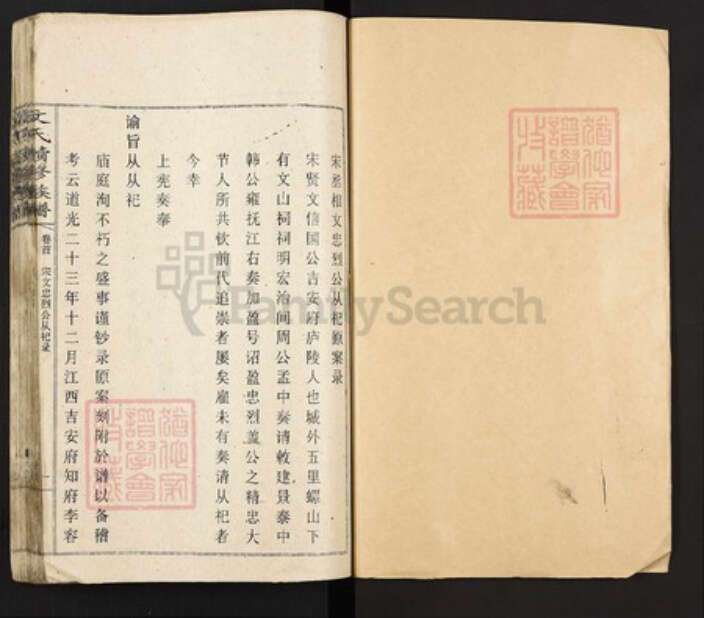 宋丞相文忠烈公从祀原案录
宋贤文信国公吉安府庐陵人也城外五里螺山下
有文山祠祠明宏治间周公孟中奏请敕建景泰中
韩公雍抚江右奏加盈号诏盈忠烈盖公之精忠大
节人所共钦前代追崇者屡矣顾未有奏请从祀者
今幸
上宪奏奉
谕旨从从祀
庙庭洵不朽之盛事谨钞录原案刻附於谱以备稽
考云道光二十三年十二月江西吉安府知府李容
文氏 修族谱
卷首
宋文忠烈公从祀录
一
FamilySearch
谱学会
收藏
谱学会
收藏